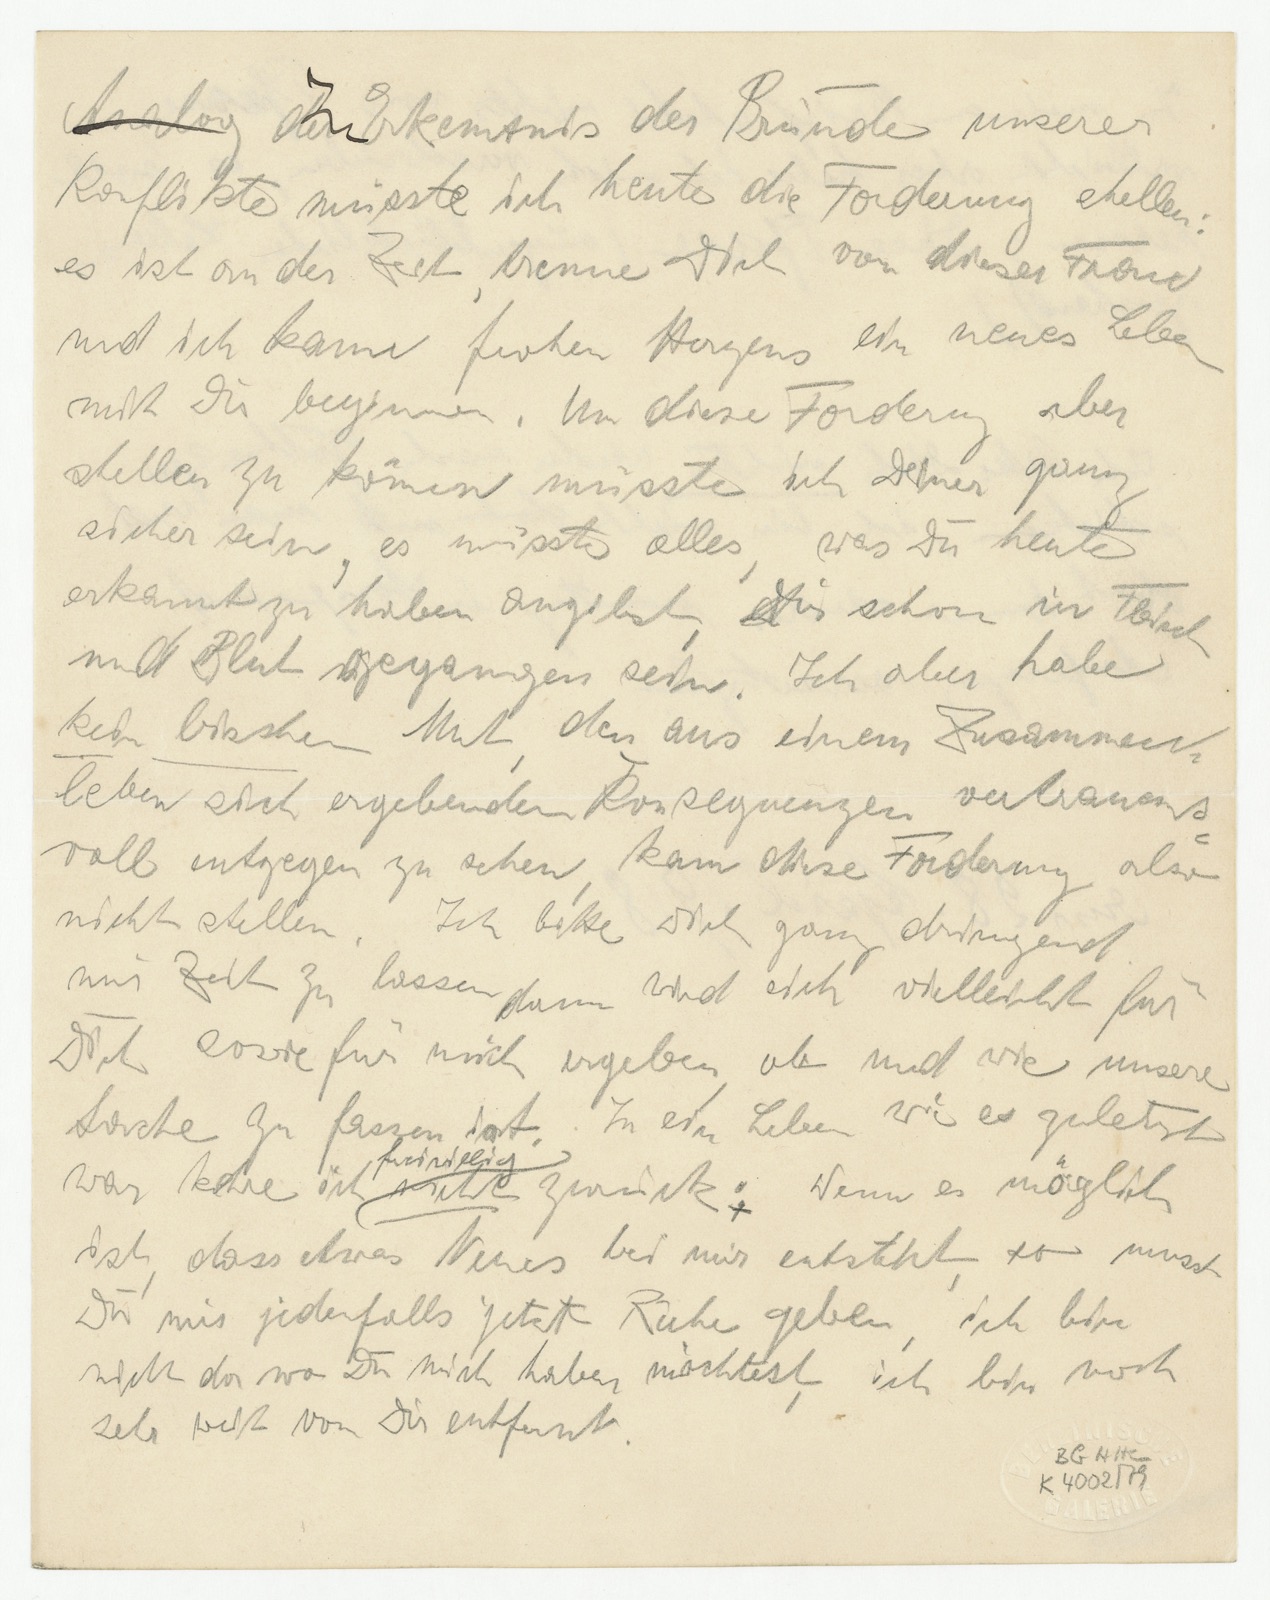 Analog der Zur Erkenntnis der Gründe unserer
Konflikte müsste ich heute die Forderung stellen:
es ist an der Zeit, trenne Dich von dieser Frau
und ich kann frohen Herzens ein neues Leben
mit Dir beginnen. Um diese Forderung aber
stellen zu können müsste ich Deiner ganz
sicher sein, es müsste alles, was Du heute
erkannt zu haben angibst, Dir schon in Fleisch
und Blut gegangen sein. Ich aber habe
kein bisschen Mut, den aus einem Zusammen-
leben sich ergebenden Konsequenzen vertrauens-
voll entgegen zu sehen, kann diese Forderung also
nicht stellen. Ich bitte Dich ganz dringend
mir Zeit zu lassen dann wird sich vielleicht für
Dich sowie für mich ergeben, ob und wie unsere
Sache zu fassen ist. In ein Leben wie es zuletzt
war kehre ich nicht freiwillig zurück. Wenn es möglich
ist, dass etwas Neues bei mir entsteht, so musst
Du mir jedenfalls jetzt Ruhe geben, ich bin
nicht da wo Du mich haben möchtest, ich bin noch
sehr weit von Dir entfernt.
BG HHC
K 4002/79
BERLINISCHE
GALERIE